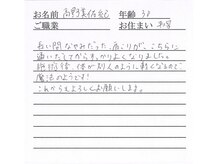 お名前 高野美佐紀 年齢 37
ご職業 お住まい 本宮
長い間なやみだった、肩こりが、こちらに
通いだしてからすっかりよくなりました。
施術後、体が別人のように軽くなるので
魔法のようです!
これからもよろしくお願いします。